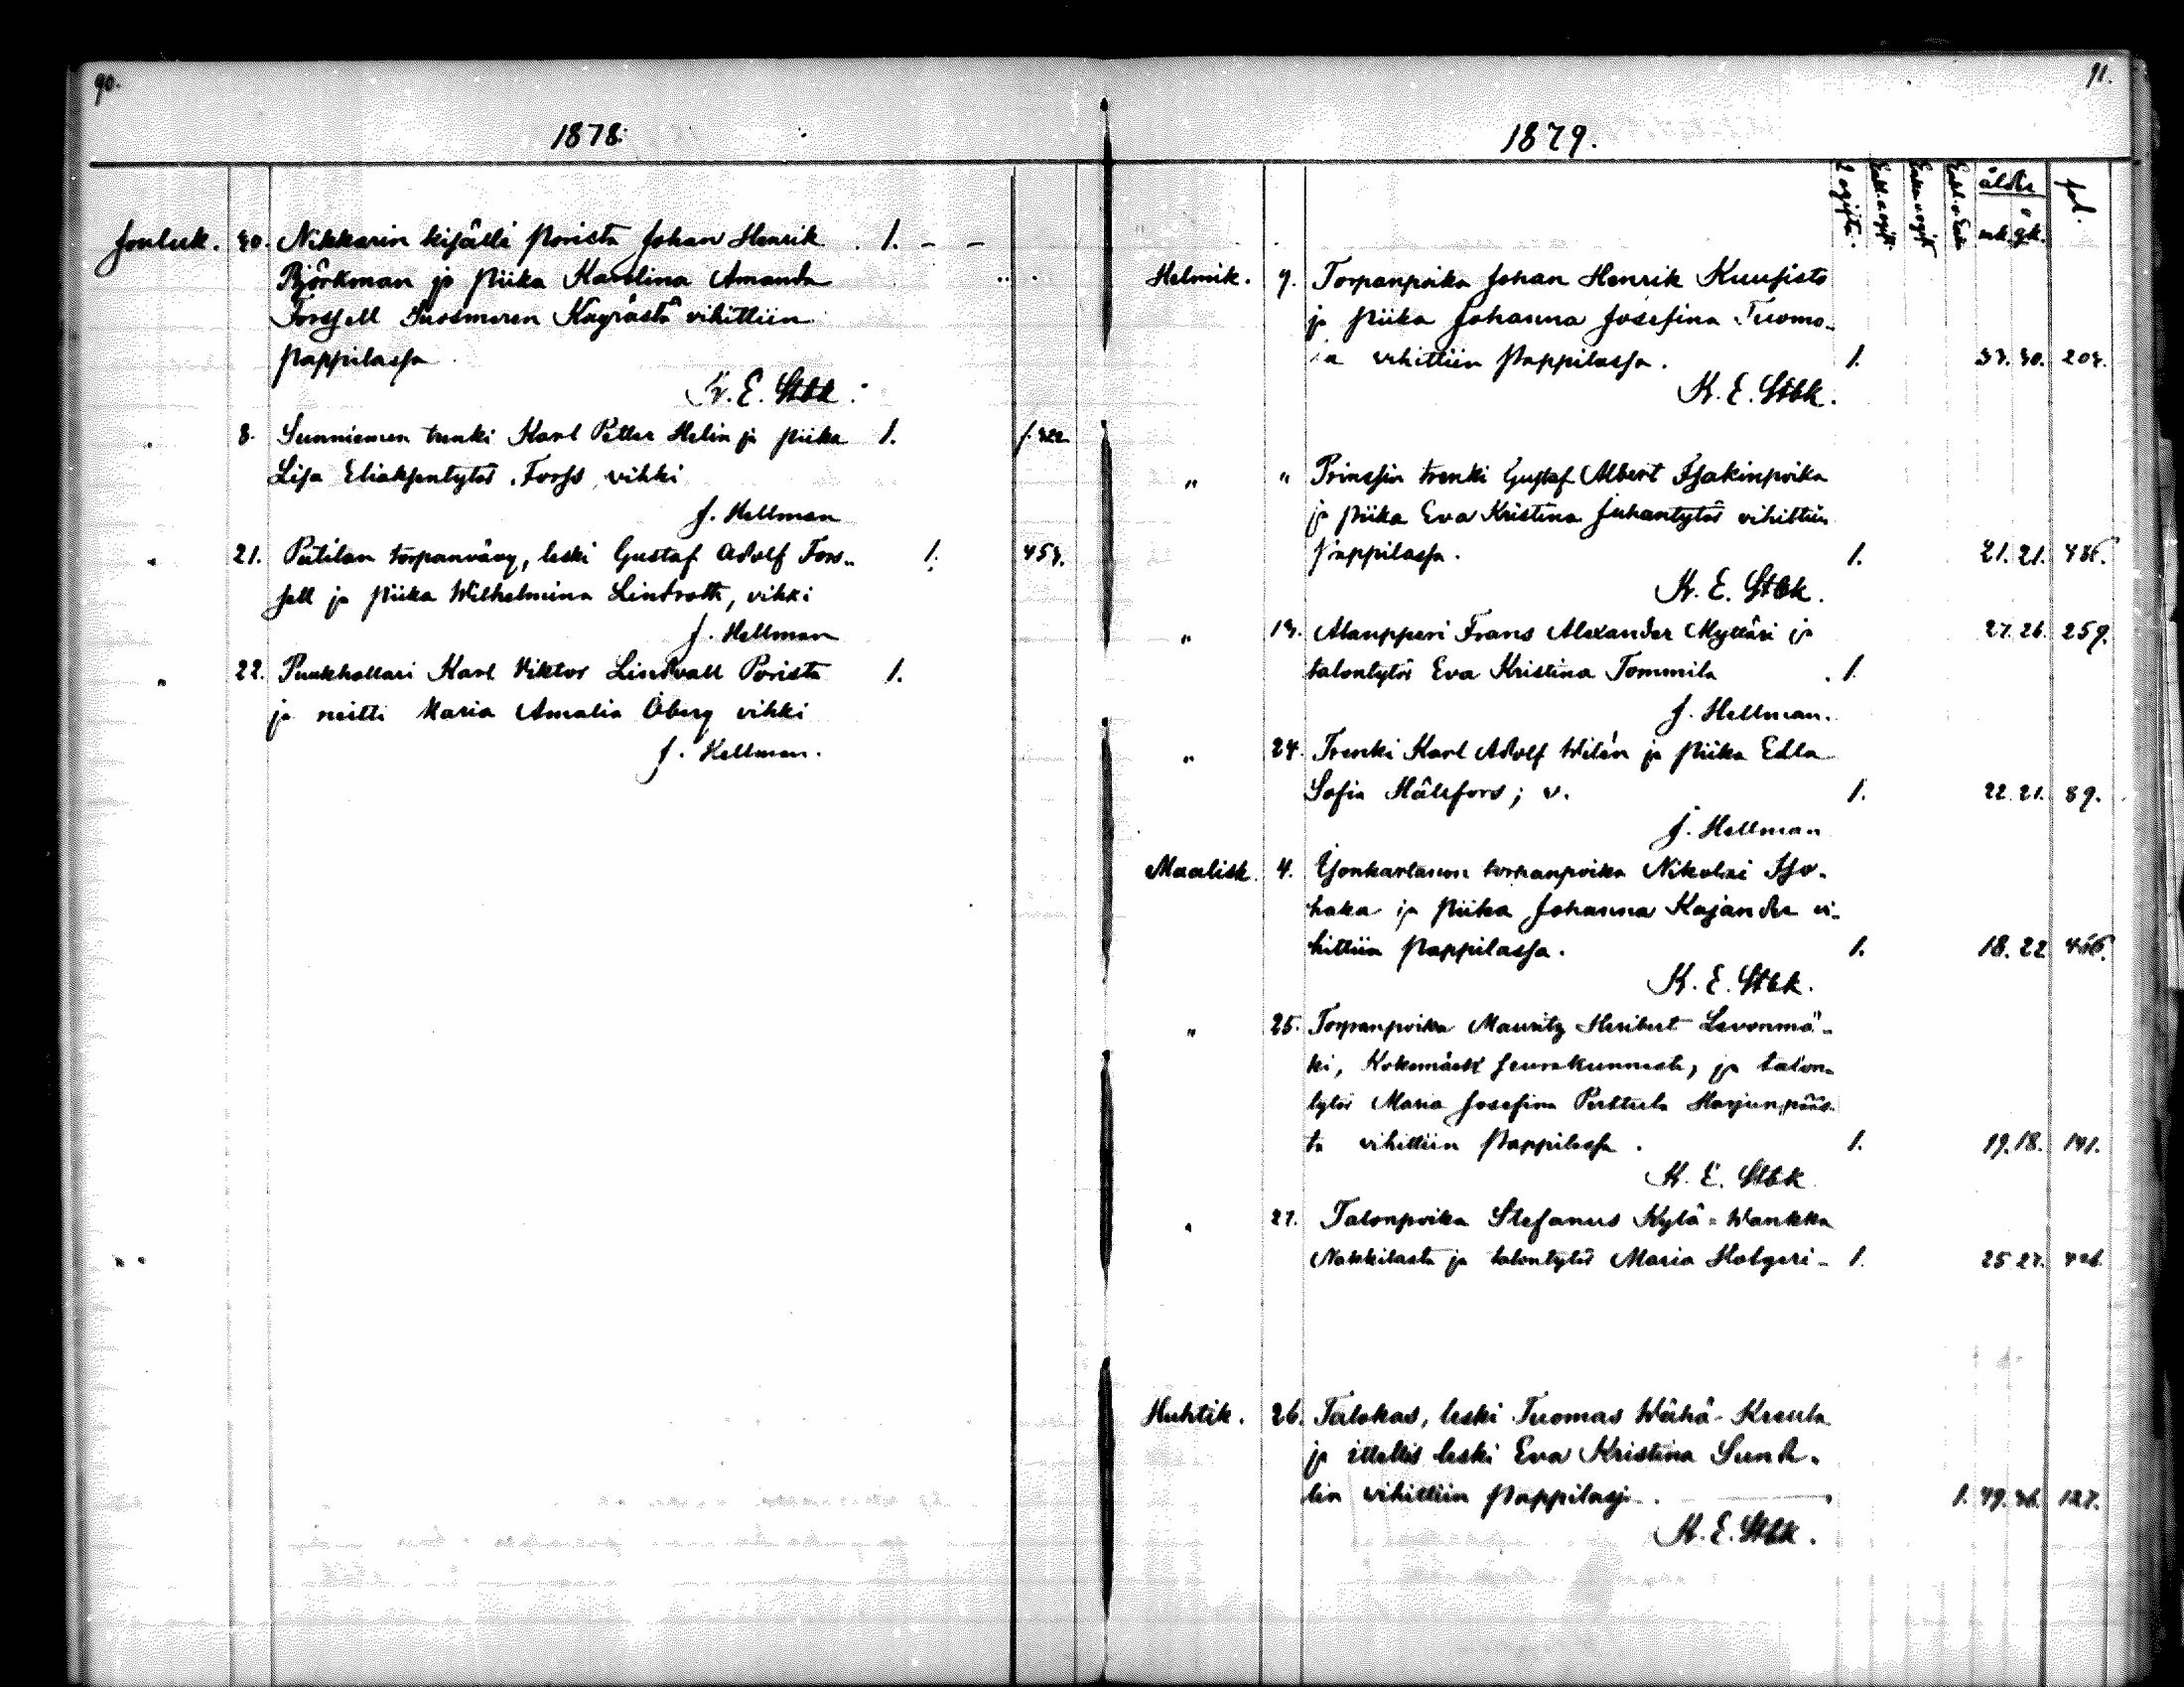 90.
1878.
Jouluk. 30. Nikkarin kisälli Porista Johan Henrik 1. - -
Björkman ja Piika Karolina Amanda
Forssell Suosmeren Käyrästä vihittiin
Pappilassa
K. E. Stbk.
8. Sunniemen trenki Karl Petter Helin ja piika 1. f. 322
Lisa Eliaksentytös Forss, vihki
J. Hellman
" 21. torpanvävy, leski Gustaf Adolf Fors- 1. 453.
sell ja Piika Wilhelmina Lindroth, vihki
J. Hellman
" 22. Puukhollari Karl Viktor Lindvall Porista 1.
ja neitti Maria Amalia Öberg vihki
J. Hellman.
91.
1879.
2 ogifta.
åldr fol.
mk. qk.
Helmik. 9. Torpanpoika Johan Henrik Kuusisto
ja Piika Johanna Josefina Tuomo-
la vihittiin Pappilassa. 1. 33. 30. 204.
K. E. Stbk.
" " Prinssin trenki Gustaf Albert Isakinpoika
ja Piika Eva Kristina Juhantytös vihittiin
Pappilassa. 1. 21. 21.
K. E. Stbk.
" 13. Alaupperi Frans Alexander Mylläri ja 27. 26. 259.
talontytös Eva Kristina Tommila 1.
J. Hellman.
" 24. Trenki Karl Adolf Wilén ja Piika Edla
Sofia Hälsfors; v. 1. 22. 21. 89.
J. Hellman
Maalisk. 4. torpanpoika Nikolai Iso-
haka ja Piika Johanna Kajander vi-
hittiin Pappilassa. 1. 18. 22
K. E. Stbk.
" 25. Torpanpoika Mauritz Heribert Levonmä-
ki, Kokemäen seurakunnasta, ja talon-
tytös Maria Josefina Perttula Harjunpääs-
tä vihittiin Pappilassa. 1. 19. 18. 141.
K. E. Stbk
" 27. Talonpoika Stefanus Kylä-Wankka
Nakkilasta ja talontytös Maria Holgeri- 1. 25. 27.
Huhtik. 26. Talokas, leski Tuomas Wähä-Kreula
ja itellis leski Eva Kristina Sund-
lin vihittiin Pappilassa. 1. 49. 127.
K. E. Stbk.